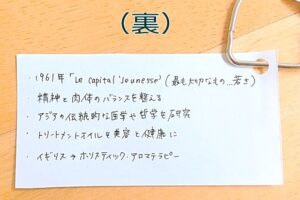 （裏）
・1961年「Le capital 'Jeunesse'（最も大切なもの…若さ）
・精神と肉体のバランスを整える
・アジアの伝統的な医学や哲学を研究
・トリートメントオイルを美容と健康に
・イギリス→ホリスティック・アロマテラピー